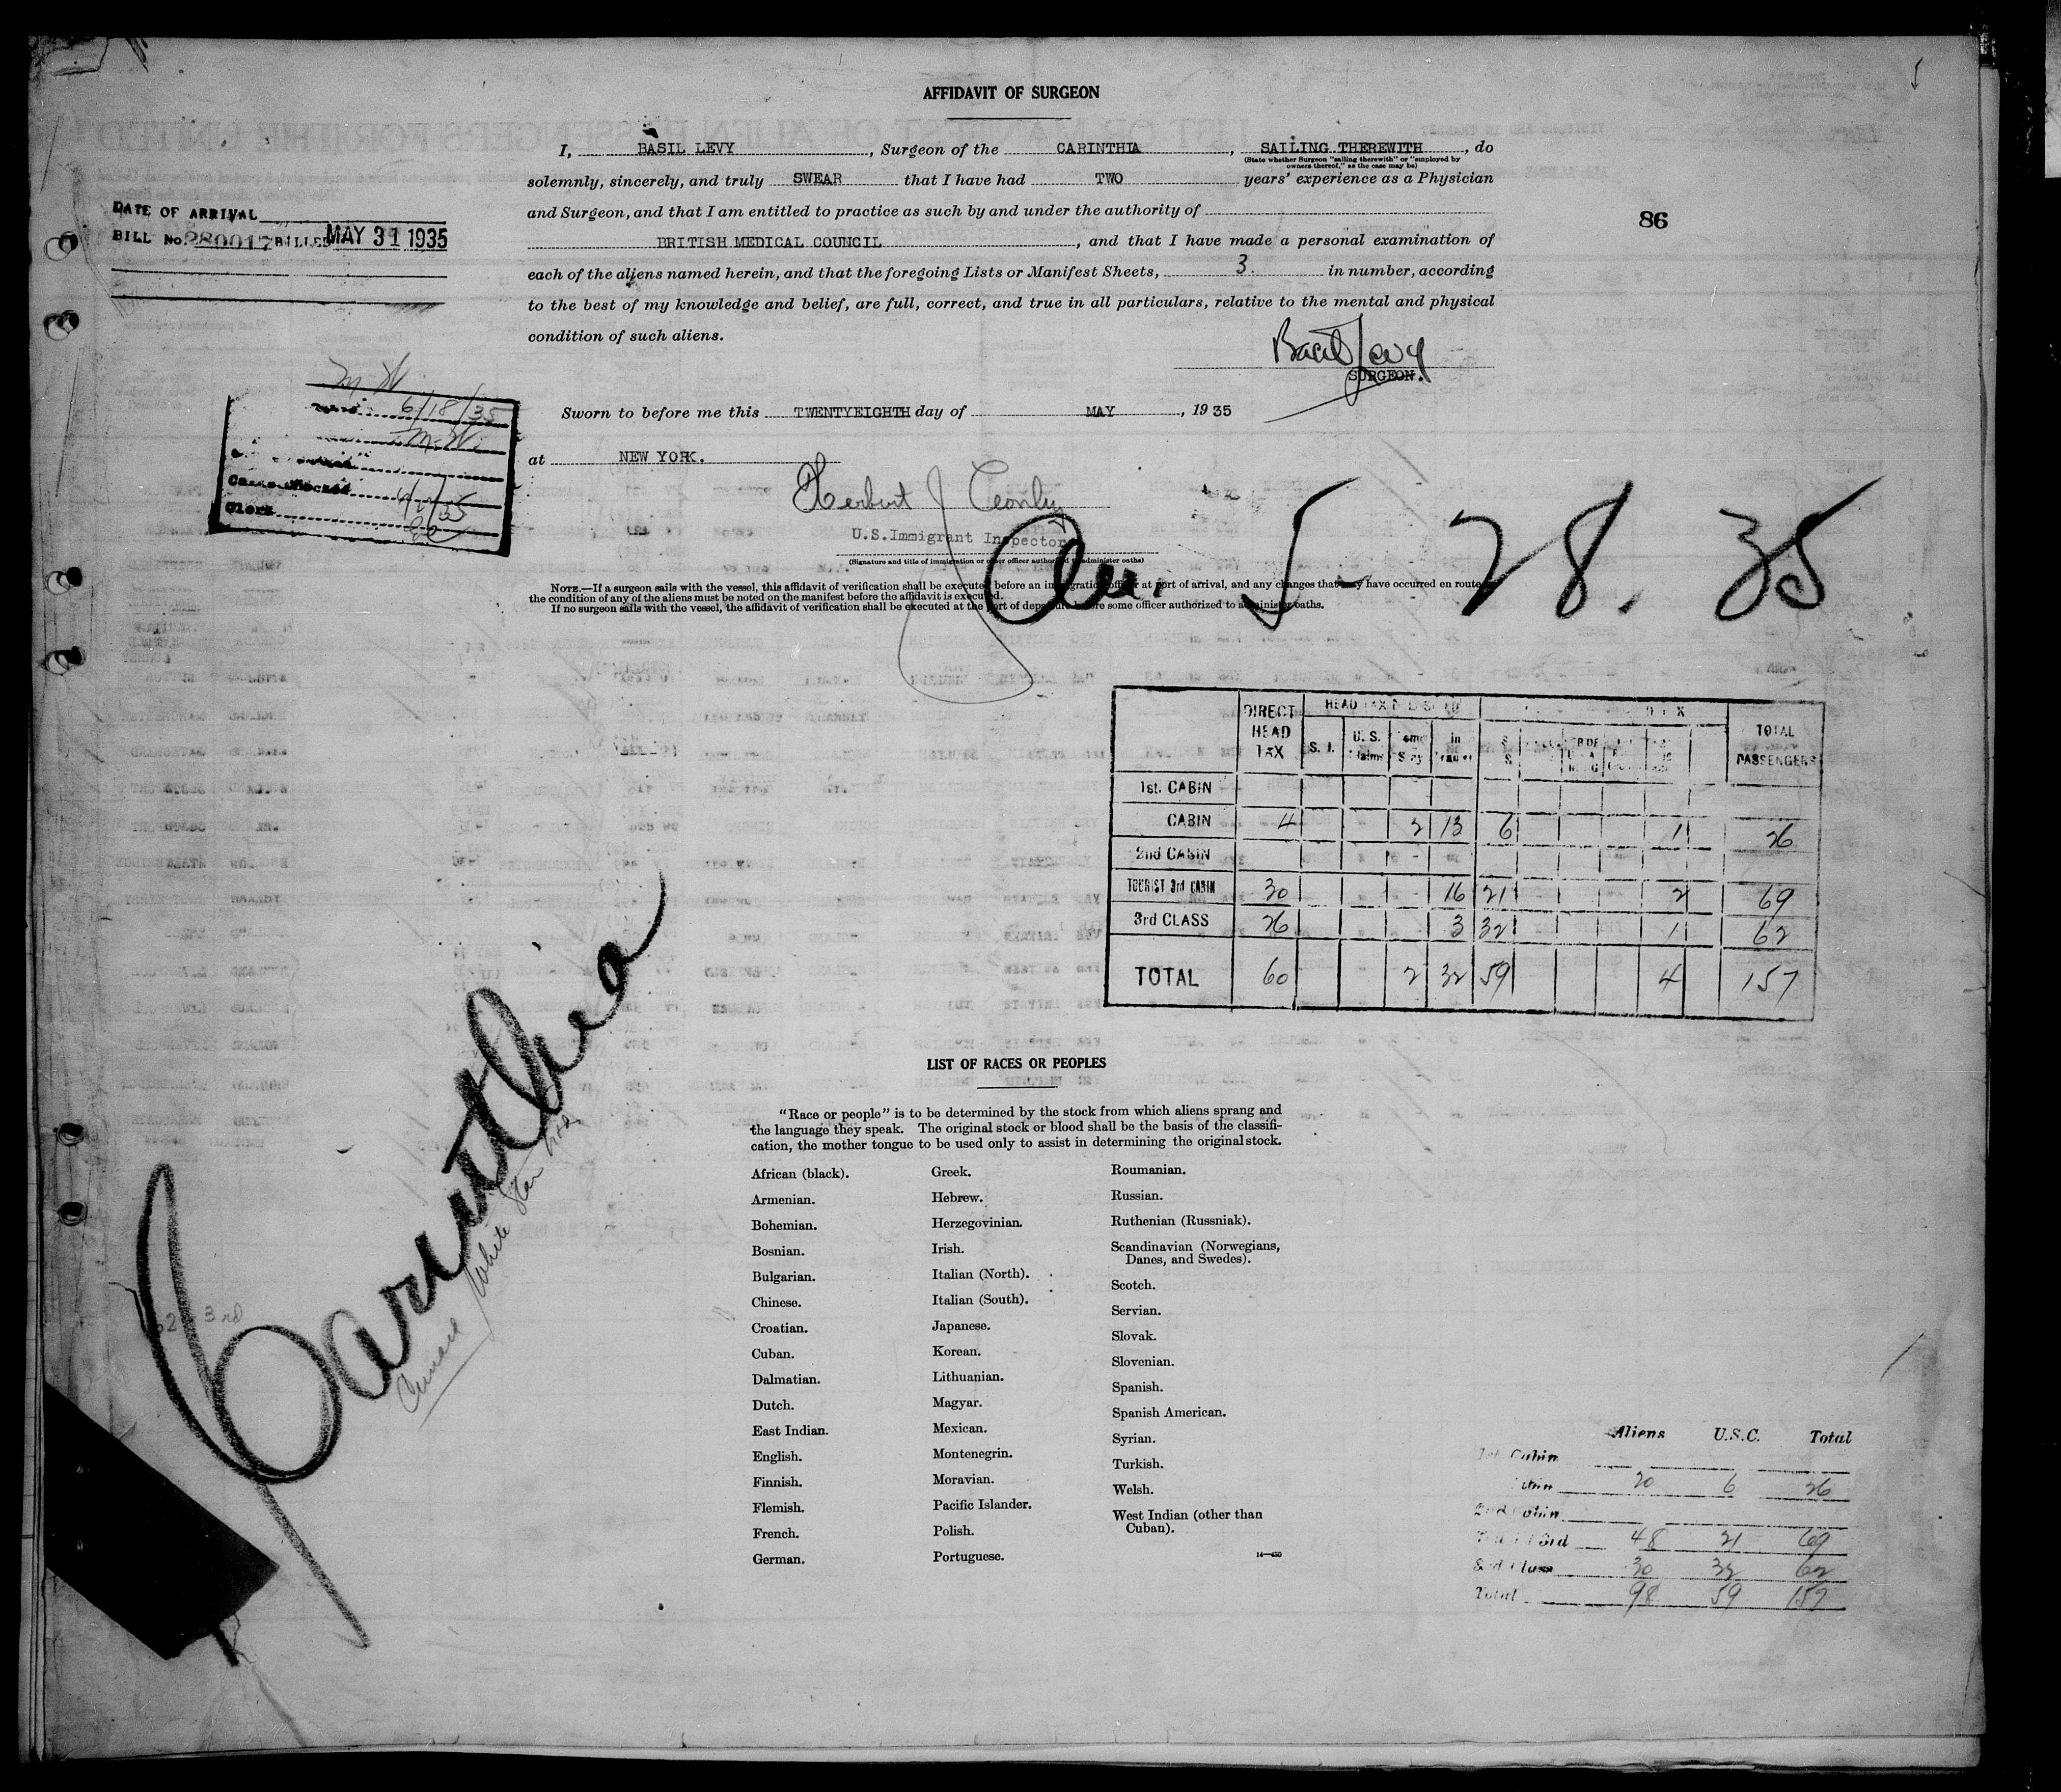 AFFIDAVIT OF SURGEON
I, BASIL LEVY, Surgeon of the CARINTHIA, SAILING THEREWITH, do
(State whether Surgeon "sailing therewith" or "employed by
owners thereof," as the case may be)
solemnly, sincerely, and truly SWEAR that I have had TWO years' experience as a Physician
and Surgeon, and that I am entitled to practice as such by and under the authority of
BRITISH MEDICAL COUNCIL, and that I have made a personal examination of
each of the aliens named herein, and that the foregoing Lists or Manifest Sheets, 3. in number, according
to the best of my knowledge and belief, are full, correct, and true in all particulars, relative to the mental and physical
condition of such aliens.
Basil Levy
SURGEON.
Sworn to before me this TWENTYEIGHTH day of MAY, 1935
at NEW YORK.
Herbert J
U.S. Immigrant Inspector
(Signature and title of immigration or other officer authorized to administer oaths)
NOTE.—If a surgeon sails with the vessel, this affidavit of verification shall be executed before an immigration officer at port of arrival, and any changes that may have occurred en route
the condition of any of the aliens must be noted on the manifest before the affidavit is executed.
If no surgeon sails with the vessel, the affidavit of verification shall be executed at the port of departure before some officer authorized to administer oaths.
DATE OF ARRIVAL
BILL No. 280017 BILLED MAY 31 1935
86
6/18/35
Clerk
5-28.35
DIRECT HEAD TAX
HEAD TAX
S. I.
U. S.
TOTAL PASSENGERS
1st. CABIN
CABIN 4 2 13 6 1 26
2nd CABIN
TOURIST 3rd CABIN 30 16 21 2 69
3rd CLASS 26 3 32 1 62
TOTAL 60 2 32 59 4 157
Carinthia
Cunard White Star
3rd
LIST OF RACES OR PEOPLES
"Race or people" is to be determined by the stock from which aliens sprang and
the language they speak. The original stock or blood shall be the basis of the classifi-
cation, the mother tongue to be used only to assist in determining the original stock.
African (black).
Armenian.
Bohemian.
Bosnian.
Bulgarian.
Chinese.
Croatian.
Cuban.
Dalmatian.
Dutch.
East Indian.
English.
Finnish.
Flemish.
French.
German.
Greek.
Hebrew.
Herzegovinian.
Irish.
Italian (North).
Italian (South).
Japanese.
Korean.
Lithuanian.
Magyar.
Mexican.
Montenegrin.
Moravian.
Pacific Islander.
Polish.
Portuguese.
Roumanian.
Russian.
Ruthenian (Russniak).
Scandinavian (Norwegians,
Danes, and Swedes).
Scotch.
Servian.
Slovak.
Slovenian.
Spanish.
Spanish American.
Syrian.
Turkish.
Welsh.
West Indian (other than
Cuban).
Aliens U.S.C. Total
1st Cabin
Cabin 20 6 26
2nd Cabin
3rd 48 21 69
3rd Class 30 32 62
Total 98 59 157